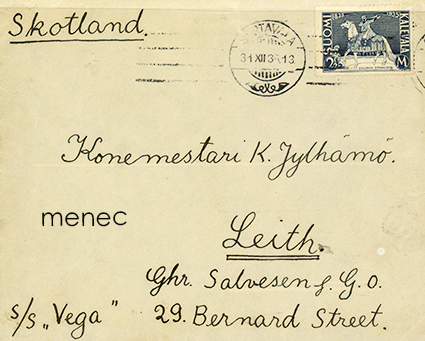 Skotland.
31 XII 35. 13
SUOMI 1835 1935 KALEVALA
2½ M
Konemestari K. Jylhämö.
menec
Leith.
Chr. Salvesen & C.o.
S/S „Vega" 29. Bernard Street.